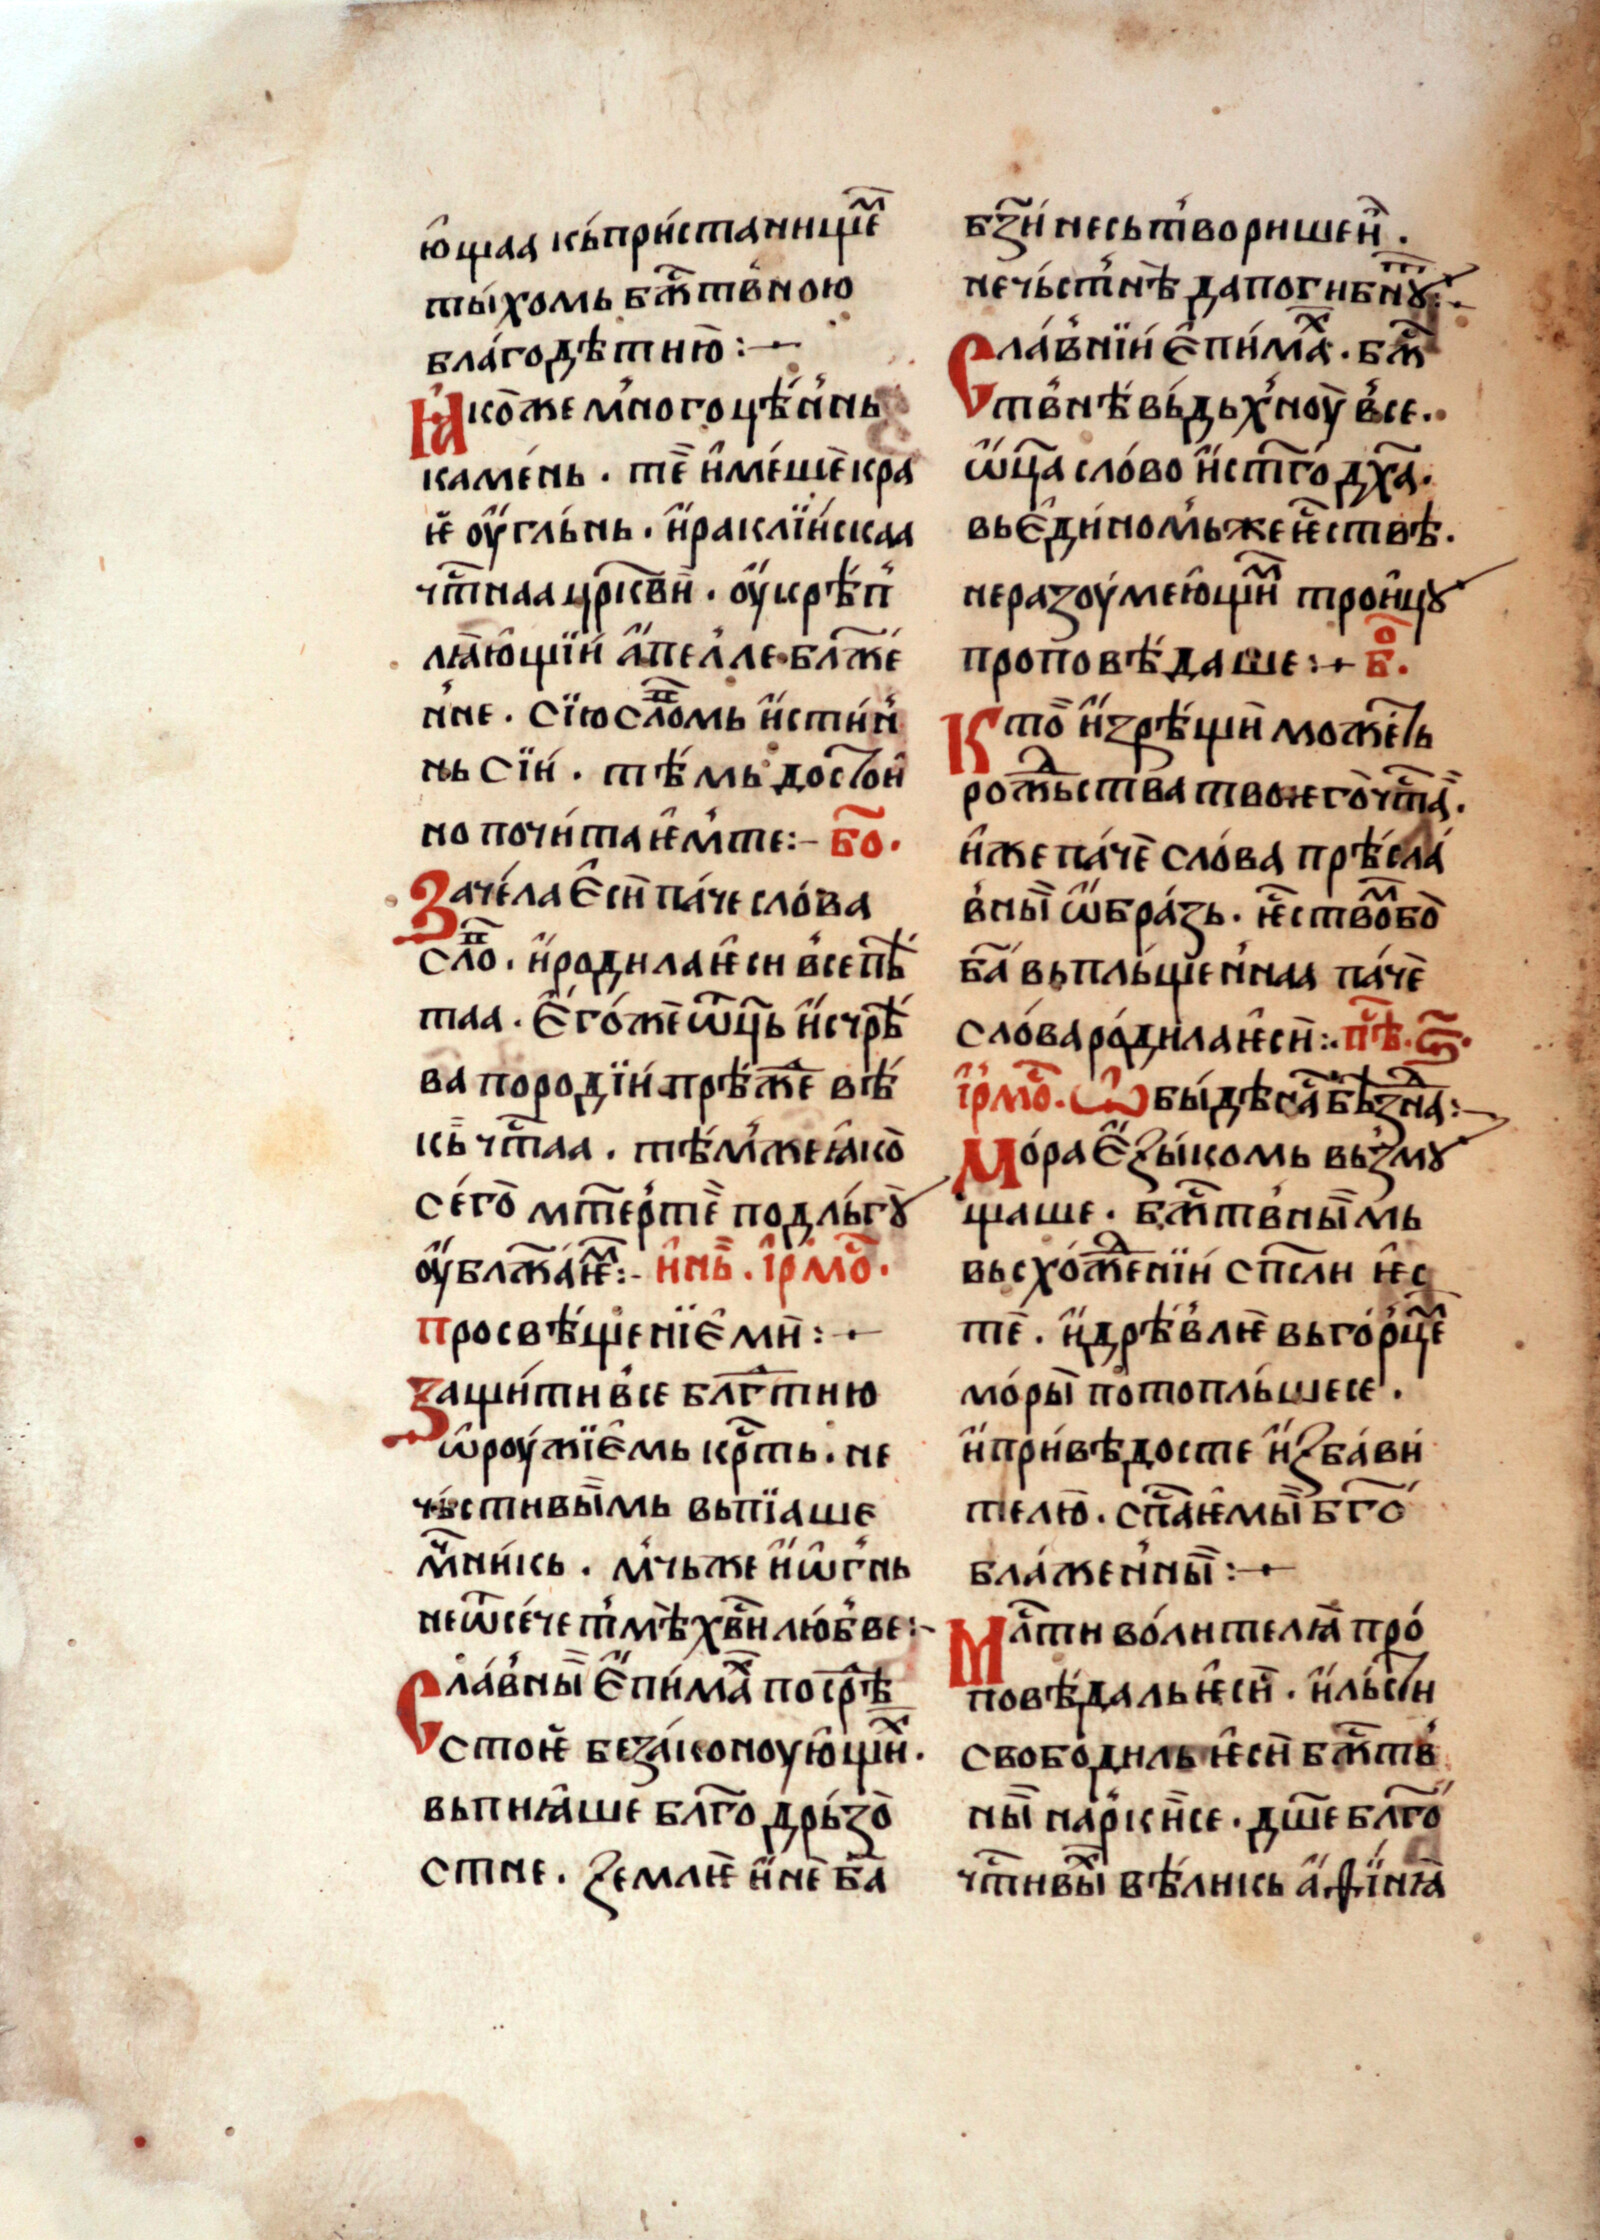 ю҆щаа кьпри́станищемⷨ
ты́хомь бжⷭ҇твⷩ҇ною
благодѣтню̀:—
Ꙗ҆ко́же мⷩ҇ного цѣ́н̾нь
каме́нь. те҆̀ и҆ме́шѐ кра
ѥ҆ оу҆гль́нь. и҆раклїи́скаа
чⷭ҇тнаа црк҃ви̏. оу҆крѣ́п̾
лꙗ́ю҆щїи а҆пелле. блж҃е́
н̾не. сїю слⷪ҇помь и҆сти́н̾
нь сїи́. тѣ́мь досто́и҆
но почи́таѥ҆м̾те:– бо҃.
Заче́ла є҆си̏ па́че сло́ва
сло҃. и҆родила ѥ҆си в̾сепѣ́
таа. є҆го́же ѿц҃ь и҆счрѣ́
ва породїи́. прѣ́жⷣе вѣ́
кь̏ чⷭ҇таа. тѣ́м̾же ꙗ҆ко̀
се́го̀ мт҃ерь́те̏ подль́гꙋ̀
оу҆блж҃а́ѥмⷨ:– и҆нь̏. і҆рмⷪ҇с.
Просвѣ́щенїє҆ ми̏:—
Защи́ти в̾се блгⷣтню
ѡ҆рꙋ́жїє҆мь крⷭ҇ть. не
чь́стивы́мь вьпїаше
мⷱ҇ни́кь. мⷱ҇ьже и҆ѡ҆г̾нь
неѿсе́чет̾мѣ̀ хвⷭ҇и лю́б̾ве:–
Сла́в̾ны̏ є҆пи́маⷯ посрⷣѣ̀
стоѥ҆ беза́коноую҆щиⷯ.
вьпиꙗ҆ше блг҃о дрь́зо̀
стне. ꙁемлѥ҆ и҆не̏ ба҃
бꙁ҃и́ несьт̾воришеи̏.
нечь́ст̾нѣ̀ дапогибнꙋⷮ:–
Сла́в̾нїи́ є҆пи́маⷯ. бжⷭ҇
т̾внѣ́ вь́дьх̾ноу̀ в̾се.
ѿц҃а сло́во и҆ст҃го дх҃а.
вь є҆ди́ном̾ьже ѥⷭ҇ствѣ.
неразоу́мею҆щиⷨ трои҆цꙋ
проповѣ́даше:— бⷪ҇.
Кто̏ и҆зрѣ́щи̏ можⷭ҇еть
рожⷣьства твоѥго̀ чⷭ҇таа̏.
и҆же па́че̏ сло́ва прѣ́сла́
в̾ны̏ ѡ҆бра́зь. ѥⷭ҇ствомⷨ бо̀
ба҃ вьпль́щен̾наа па́че̏
сло́ва ро́дила ѥ҆си̏:. пⷭ҇ѣ. ѕ҃.
і҆рмⷪ҇с. Ѡ҆бы́дѣ саⷭ҇ бѣꙁⷣна:—
Мо́ра є҆ꙁы́комь вьз̾мꙋ
щаше. бжⷭ҇тв̾ны́мь
вьсхо́жⷣенїи́ сп҃сли ѥ҆с
те̏. и҆дрѣ́в̾лѥ̏ вьго́р̾цемⷨ
мо́ры̏ потопль́шесе̾.
и҆при́вѣдосте и҆ꙁба́ви
телю̏. сп҃са́ѥмы̏ б҃го́
бла́жен̾ны̏:—
Мⷭ҇ати во́лителꙗ про́
повѣ́даль ѥ҆си̏. и҆льсти
свободиль ѥ҆си̏ бжⷭ҇тв̾
ны̏ на́рки̏се. дш҃е блг҃о́
чⷭ҇тивыⷯ вѣ́ликь а҆фїнꙗ̀